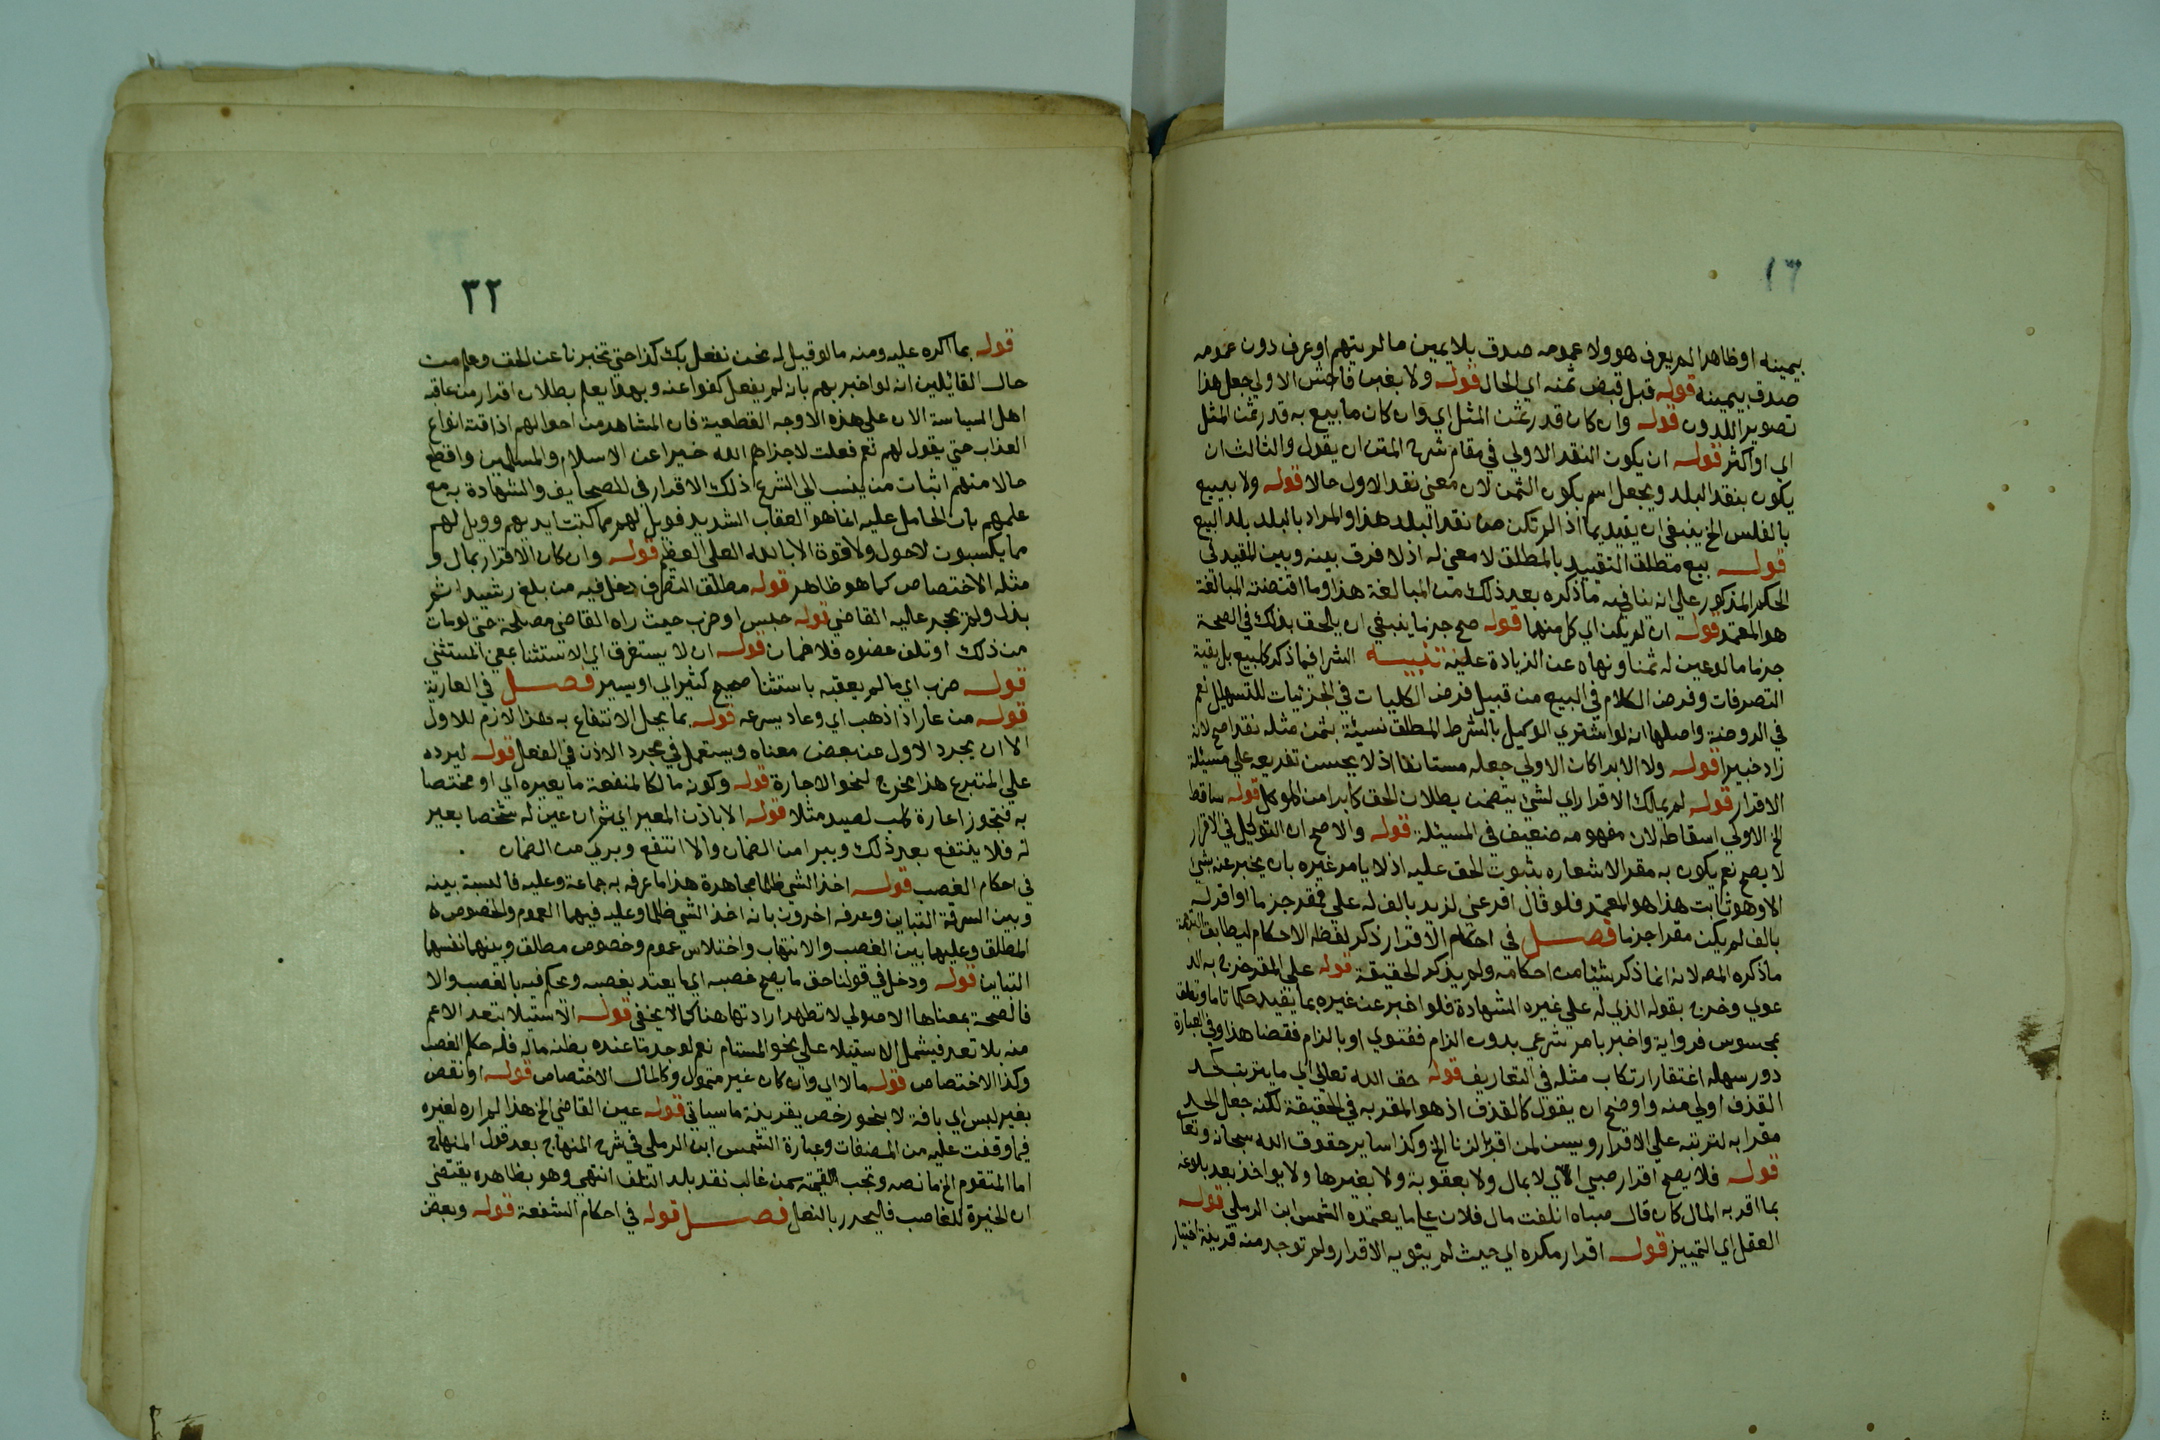 ١٦
بيمينه او ظاهرا لم يعرف هو ولا عمومه صدق بلا يمين ما لم يتهم او عرف دون عمومه
صدق بيمينه قوله قبل قبض ثمنه اي الحال قوله ولا بغبن فاحش الاولي جعل هذا
تصوير اللدون قوله وان كان قدر ثمن المثل اي وان كان ما بيع به قدر ثمن المثل
اي او اكثر قوله ان يكون النقد الاولي في مقام شرح المتن ان يقول والثالث ان
يكون بنقد البلد ويجعل اسم يكون الثمن لان معني نقد الاول حالا قوله ولا يبيع
بالفلس الخ ينبغي ان يقيد بما اذا لم تكن من نقد البلد هذا والمراد بالبلد بلد البيع
قوله بيع مطلق التقييد بالمطلق لا معني له اذ لا فرق بينه وبين المقيد في
الحكم المذكور علي انه ينافيه ما ذكره بعد ذلك من المبالغة هذا وما اقتضته المبالغة
هو المعتمد قوله ان لم يكن اي كل منهما قوله صح جزما ينبغي ان يلحق بذلك في الصحة
جزما ما لو عين له ثمنا ونهاه عن الزيادة عليه تنبيه الشرا فيما ذكر كالبيع بل بقية
التصرفات وفرض الكلام في البيع من قبيل فرض الكليات في الجزئيات للتسهيل نعم
في الروضة واصلها انه لو اشتري الوكيل بالشرط المطلق نسيئة بثمن مثله نقدا صح لانه
زاد خيرا قوله ولا الابدا كان الاولي جعله مستانفا اذ لا يحسن تفريعه علي مسئلة
الاقرار قوله لم يملك الاقرار اي لشي يتضمن بطلان الحق كابرا من الموكل قوله ساقط
الخ الاولي اسقاطه لان مفهومه ضعيف في المسئلة قوله والاصح ان التوكيل في الاقرار
لا يصح نعم يكون به مقرا لاشعاره بثبوت الحق عليه اذ لا يامر غيره بان يخبر عنه بشي
الا وهو ثابت هذا هو المعتمد فلو قال اقر عني لزيد بالف له علي فمقر جزما او اقر له
بالف لم يكن مقرا جزما فصل في احكام الاقرار ذكر لفظة الاحكام ليطابق الترجمة
ما ذكره المص لانه انما ذكر شيئا من احكامه ولم يذكر الحقيقة قوله علي المقر خرج به الد
عوي وخرج بقوله الذي له علي غيره الشهادة فلو اخبر عن غيره بما يفيد حكما تاما وتعلق
بمحسوس فرواية واخبر بامر شرعي بدون الزام ففتوي او بالزام فقضا هذا وفي العبارة
دور سهله اغتقار ارتكاب مثله في التعاريف قوله حق الله تعالي اي ما يترتب كحد
القذف اولي منه واوضح ان يقول كالقذف اذ هو المقر به في الحقيقة لكنه جعل الحد
مقرا به لترتبه علي الاقرار ويسن لمن اقر بالزنا الخ وكذا ساير حقوق الله سبحانه وتعا
قوله فلا يصح اقرار صبي الاتي لا بمال ولا بعقوبة ولا بغيرها ولا يواخذ بعد بلوغه
بما اقر به المال كان قال صباه اتلفت مال فلان علي ما يعتمده الشمس ابن الرملي قوله
العقل اي التمييز قوله اقرار مكره اي حيث لم ينو به الاقرار ولم توجد منه قرينة اختيار
٣٢
قوله بما اكره عليه ومنه ما لو قيل له نحن نفعل بك كذا حتي تخبرنا عن الحق وعلم من
حال القائلين انه لو اخبر بهم بان لم يفعل كفوا عنه وبهذا يعلم بطلان اقرار من عاقبه
اهل السياسة الان علي هذه الاوجه القطعية فان المشاهد من احوالهم اذاقته انواع
العذاب حتي يقول لهم نعم فعلت لا جزاهم الله خيرا عن الاسلام والمسلمين واقطع
حالا منهم اثبات من ينسب الي الشرع ذلك الاقرار في الصحايف والشهادة به مع
علمهم بان الحامل عليه انما هو العقاب الشديد فويل لهم مما كتبت ايديهم وويل لهم
مما يكسبون لا حول ولا قوة الا بالله العلي العظيم قوله وان كان الاقرار بمال و
مثله الاختصاص كما هو ظاهر قوله مطلق التصرف دخل فيه من بلغ رشيدا ثم
بذل ولم يحجر عليه القاضي قوله حبس او ضرب حيث راه القاضي مصلحة حتي لو مات
من ذلك او تلف عضوه فلا ضمان قوله ان لا يستغرق اي الاستثنا بمعني المستثني
قوله ضرب اي ما لم يعقبه باستثنا صحيح كثير اي او يسير فصل في العارية
قوله من عار اذا ذهب اي وعاد بسرعه قوله بما يحل الانتفاع به هذا لازم للاول
الا ان يجرد الاول عن بعض معناه ويستعمل في مجرد الاذن في الفعل قوله ليرده
علي المتبرع هذا مخرج لنحو الاجارة قوله وكونه مالكا لمنفعة ما يعيره اي او مختصا
به فتجوز اعارة كلب لصيد مثلا قوله الا باذن المعير اي ثم ان عين له شخصا بعير
له فلا ينتفع بعد ذلك ويبرا من الضمان والا انتفع وبري من الضمان
في احكام الغصب قوله اخذ الشي ظلما مجاهرة هذا ما عرفه به جماعة وعليه فالنسبة بينه
وبين السرقة التباين وعرفه اخرون بانه اخذ الشي ظلما وعليه فبينهما العموم والخصوص
المطلق وعليهما بين الغصب والانتهاب واختلاس عموم وخصوص مطلق وبينهما نفسها
التباين قوله ودخل في قولنا حق ما يصح غصبه اي ما يعتد بغصبه ويحكم فيه بالغصب والا
فالصحة بمعناها الاصولي لا تظهر ارادتها هنا كما لا يخفي قوله الاستيلا بتعد الاعم
منه بلا تعد فيشمل الاستيلا علي نحو المستام نعم لو جد ما عنده بظنه ماله فله حكم الغصب
وكذا الاختصاص قوله مالا اي وان كان غير متمول وكالمال الاختصاص قوله او نقص
بغير لبس اي بافة لا بنحو رخص بقرينة ما سياتي قوله عين القاضي الخ هذا لم اره لغيره
فيما وقفت عليه من المصنفات وعبارة الشمس ابن الرملي في شرح المنهاج بعد قول المنهاج
اما المتقوم الخ ما نصه وتجب القيمة من غالب نقد بلد التلف انتهي وهو بظاهره يقتضي
ان الخيرة للغاصب فاليحرر بالنقل فصل قوله في احكام الشفعة قوله وبعض